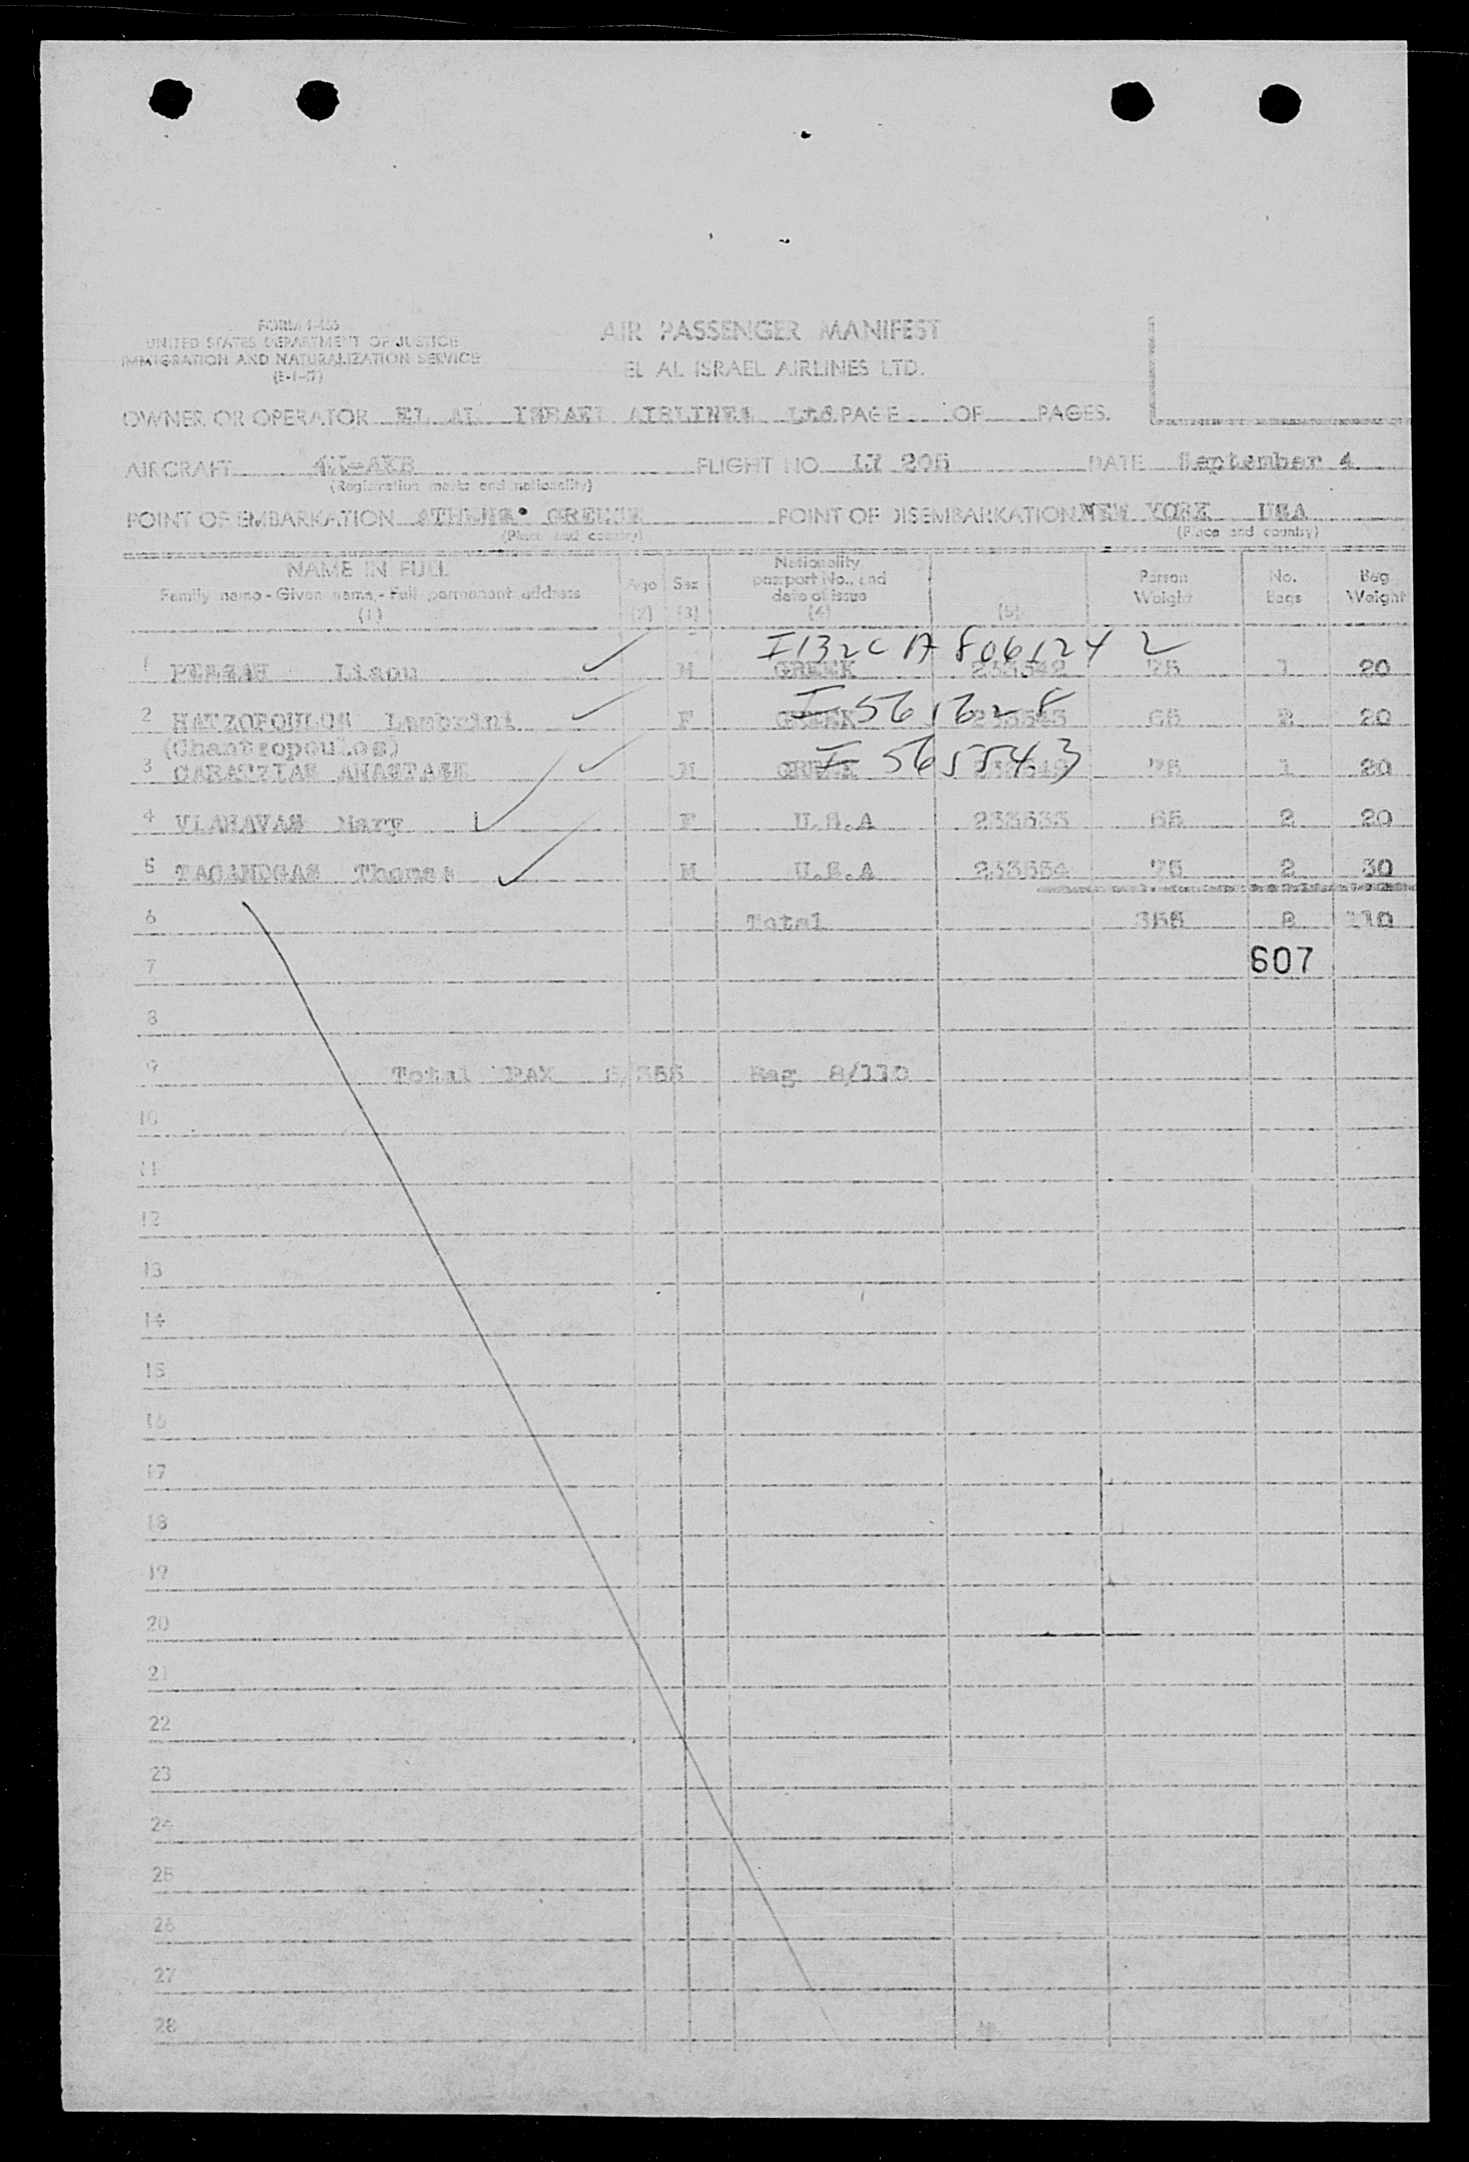 FORM I-466
UNITED STATES DEPARTMENT OF JUSTICE
IMMIGRATION AND NATURALIZATION SERVICE
AIR PASSENGER MANIFEST
EL AL ISRAEL AIRLINES LTD.
OWNER OR OPERATOR EL AL ISRAEL AIRLINES Ltd. PAGE OF PAGES.
AIRCRAFT 4X-AKB FLIGHT NO. LY 205 DATE September 4
(Registration marks and nationality)
POINT OF EMBARKATION ATHENS. GREECE POINT OF DISEMBARKATION NEW YORK USA
(Place and country) (Place and country)
NAME IN FULL Family name - Given name - Full permanent address (1) Age (2) Sex (3) Nationality passport No., and date of issue (4) (5) Person Weight No. Bags Bag Weight
I132C A8061242
1 PESSAH Liaou M GREEK 233542 75 1 20
I 561628
2 HATZOPOULOS Lambrini F GREEK 65 2 20
(Chantzopoulos)
I 565543
3 CARATZIAS ANASTASE M GREEK 75 1 20
4 VLAHAVAS Mary F U.S.A 233633 65 2 20
5 Thomas M U.S.A 233654 75 2 30
6 Total 355 8 110
607
7
8
9 Total PAX 5/355 Bag 8/110
10
11
12
13
14
15
16
17
18
19
20
21
22
23
24
25
26
27
28